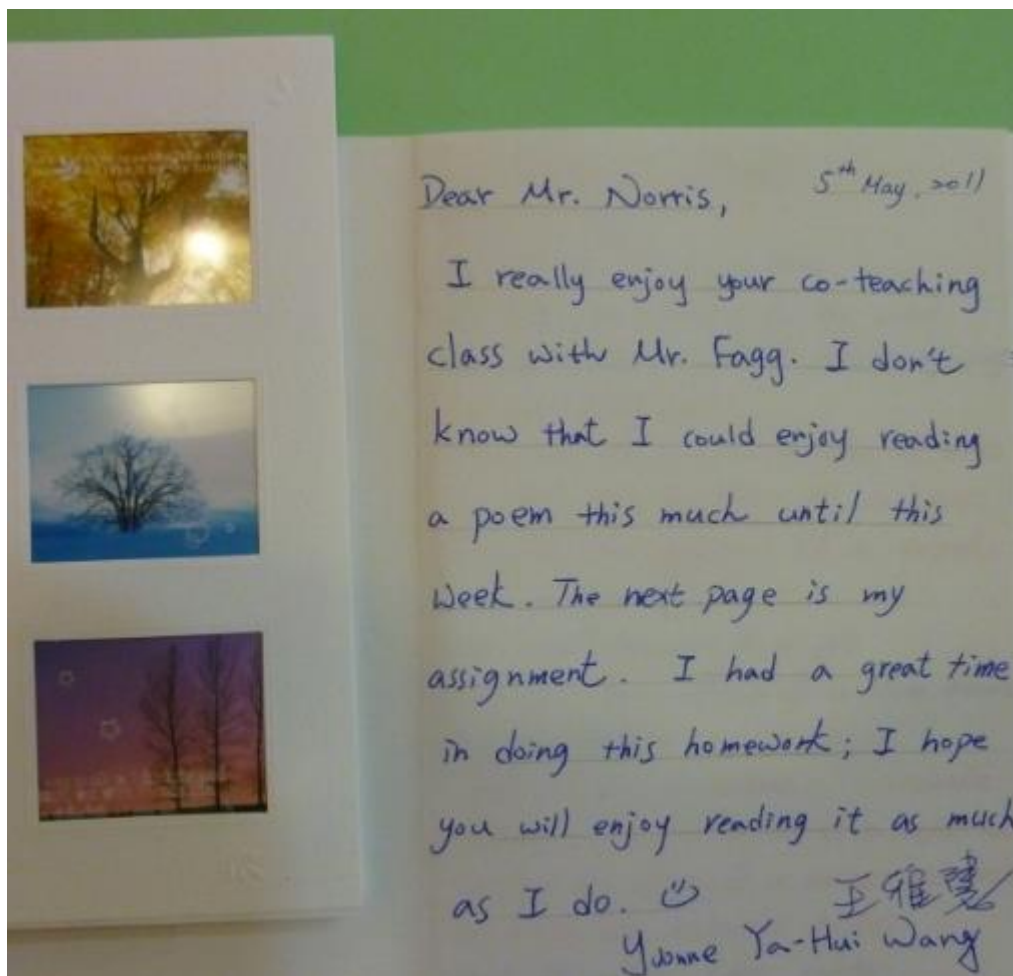 Dear Mr. Norris,
5th May, 2011
I really enjoy your co-teaching
class with Mr. Fagg. I don't
know that I could enjoy reading
a poem this much until this
week. The next page is my
assignment. I had a great time
in doing this homework; I hope
you will enjoy reading it as much
as I do.
王雅慧
Yvonne Ya-Hui Wang